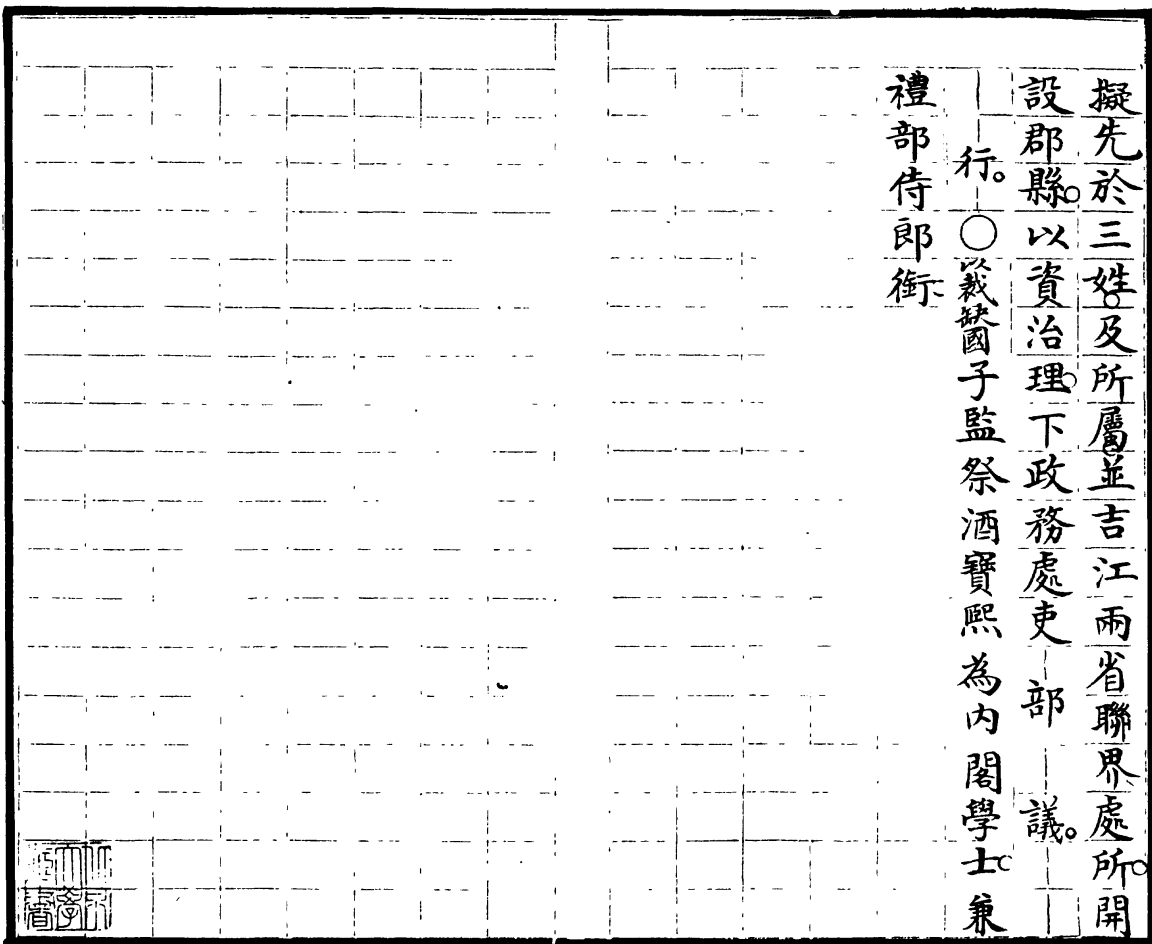 擬先於三姓。及所屬並吉江兩省聯界處所。開
設郡縣。以資治理。下政務處吏部議。
行。○以裁缺國子監祭酒寶熙為內閣學士。兼
禮部侍郎銜